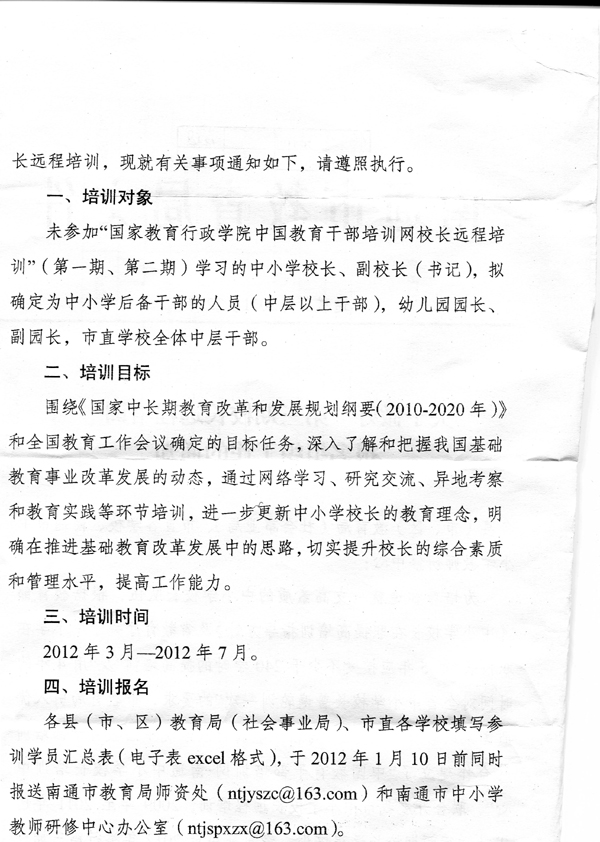 长远程培训，现就有关事项通知如下，请遵照执行。
一、培训对象
未参加“国家教育行政学院中国教育干部培训网校长远程培
训”（第一期、第二期）学习的中小学校长、副校长（书记），拟
确定为中小学后备干部的人员（中层以上干部），幼儿园园长、
副园长，市直学校全体中层干部。
二、培训目标
围绕《国家中长期教育改革和发展规划纲要（2010-2020年）》
和全国教育工作会议确定的目标任务，深入了解和把握我国基础
教育事业改革发展的动态，通过网络学习、研究交流、异地考察
和教育实践等环节培训，进一步更新中小学校长的教育理念，明
确在推进基础教育改革发展中的思路，切实提升校长的综合素质
和管理水平，提高工作能力。
三、培训时间
2012年3月—2012年7月。
四、培训报名
各县（市、区）教育局（社会事业局）、市直各学校填写参
训学员汇总表（电子表excel格式），于2012年1月10日前同时
报送南通市教育局师资处（ntjyszc@163.com）和南通市中小学
教师研修中心办公室（ntjspxzx@163.com）。